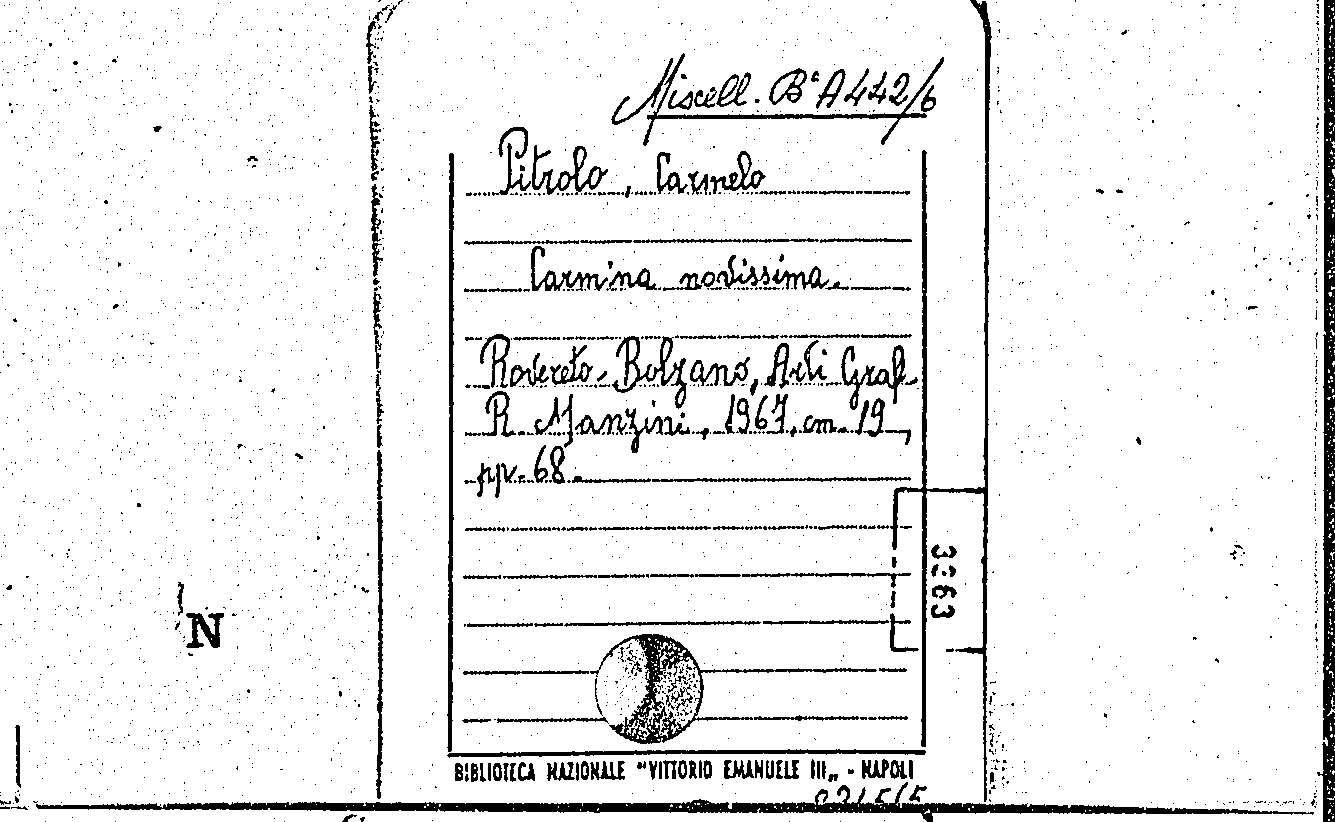 Miscell. Bª A 442/6
Pitrolo, Carmelo
Carmina novissima.
Rovereto-Bolzano, Arti Graf.
R. Manzini, 1967, cm. 19,
pp. 68.
3363
N
BIBLIOTECA NAZIONALE "VITTORIO EMANUELE III„ - NAPOLI